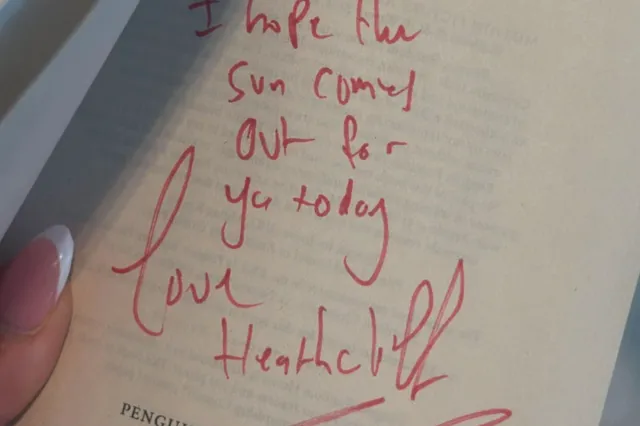 I hope the
sun comes
out for
ya today
Love
Heathcliff
PENGU